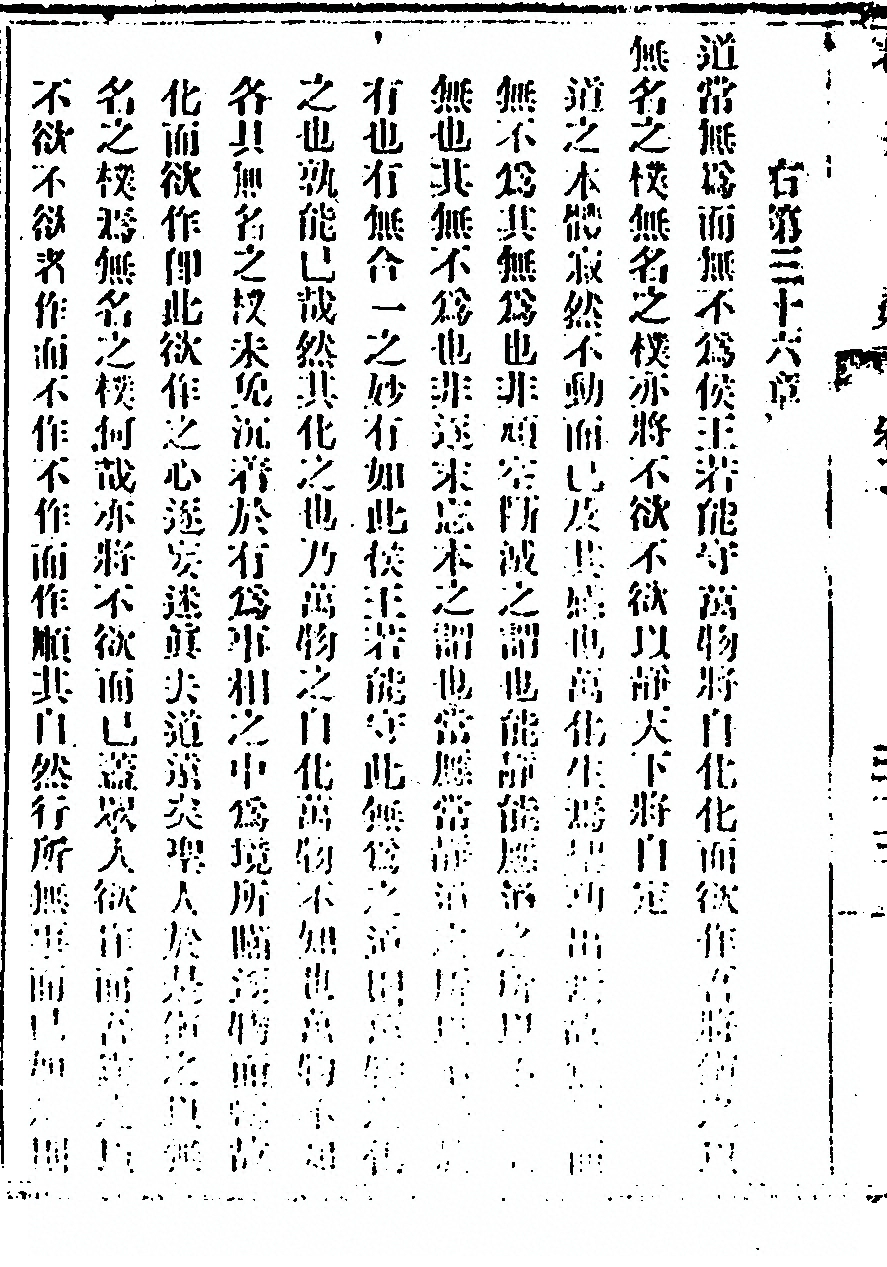 右第三十六章
道常無爲而無不爲侯王若能守萬物將自化化而欲作吾將鎮之以
無名之樸無名之樸亦將不欲不欲以靜天下將自定
道之本體寂然不動而已及其應也萬化生焉聖功出
無不爲其無爲也非頑空斷滅之謂也能靜能應道之所以
無也其無不爲也非逐末忘本之謂也常應常靜道之所以
有也有無合一之妙有如此侯王若能守此無爲之道則萬物之化
之也孰能已哉然其化之也乃萬物之自化萬物不知也萬物不知
各具無名之樸未免沉着於有爲事相之中爲境所瞞逐物而
化而欲作卽此欲作之心逐妄迷眞去道遠矣聖人於是鎮之以無
名之樸焉無名之樸何哉亦將不欲而已蓋眾人欲作而
不欲不欲者作而不作不作而作順其自然行所無事而已